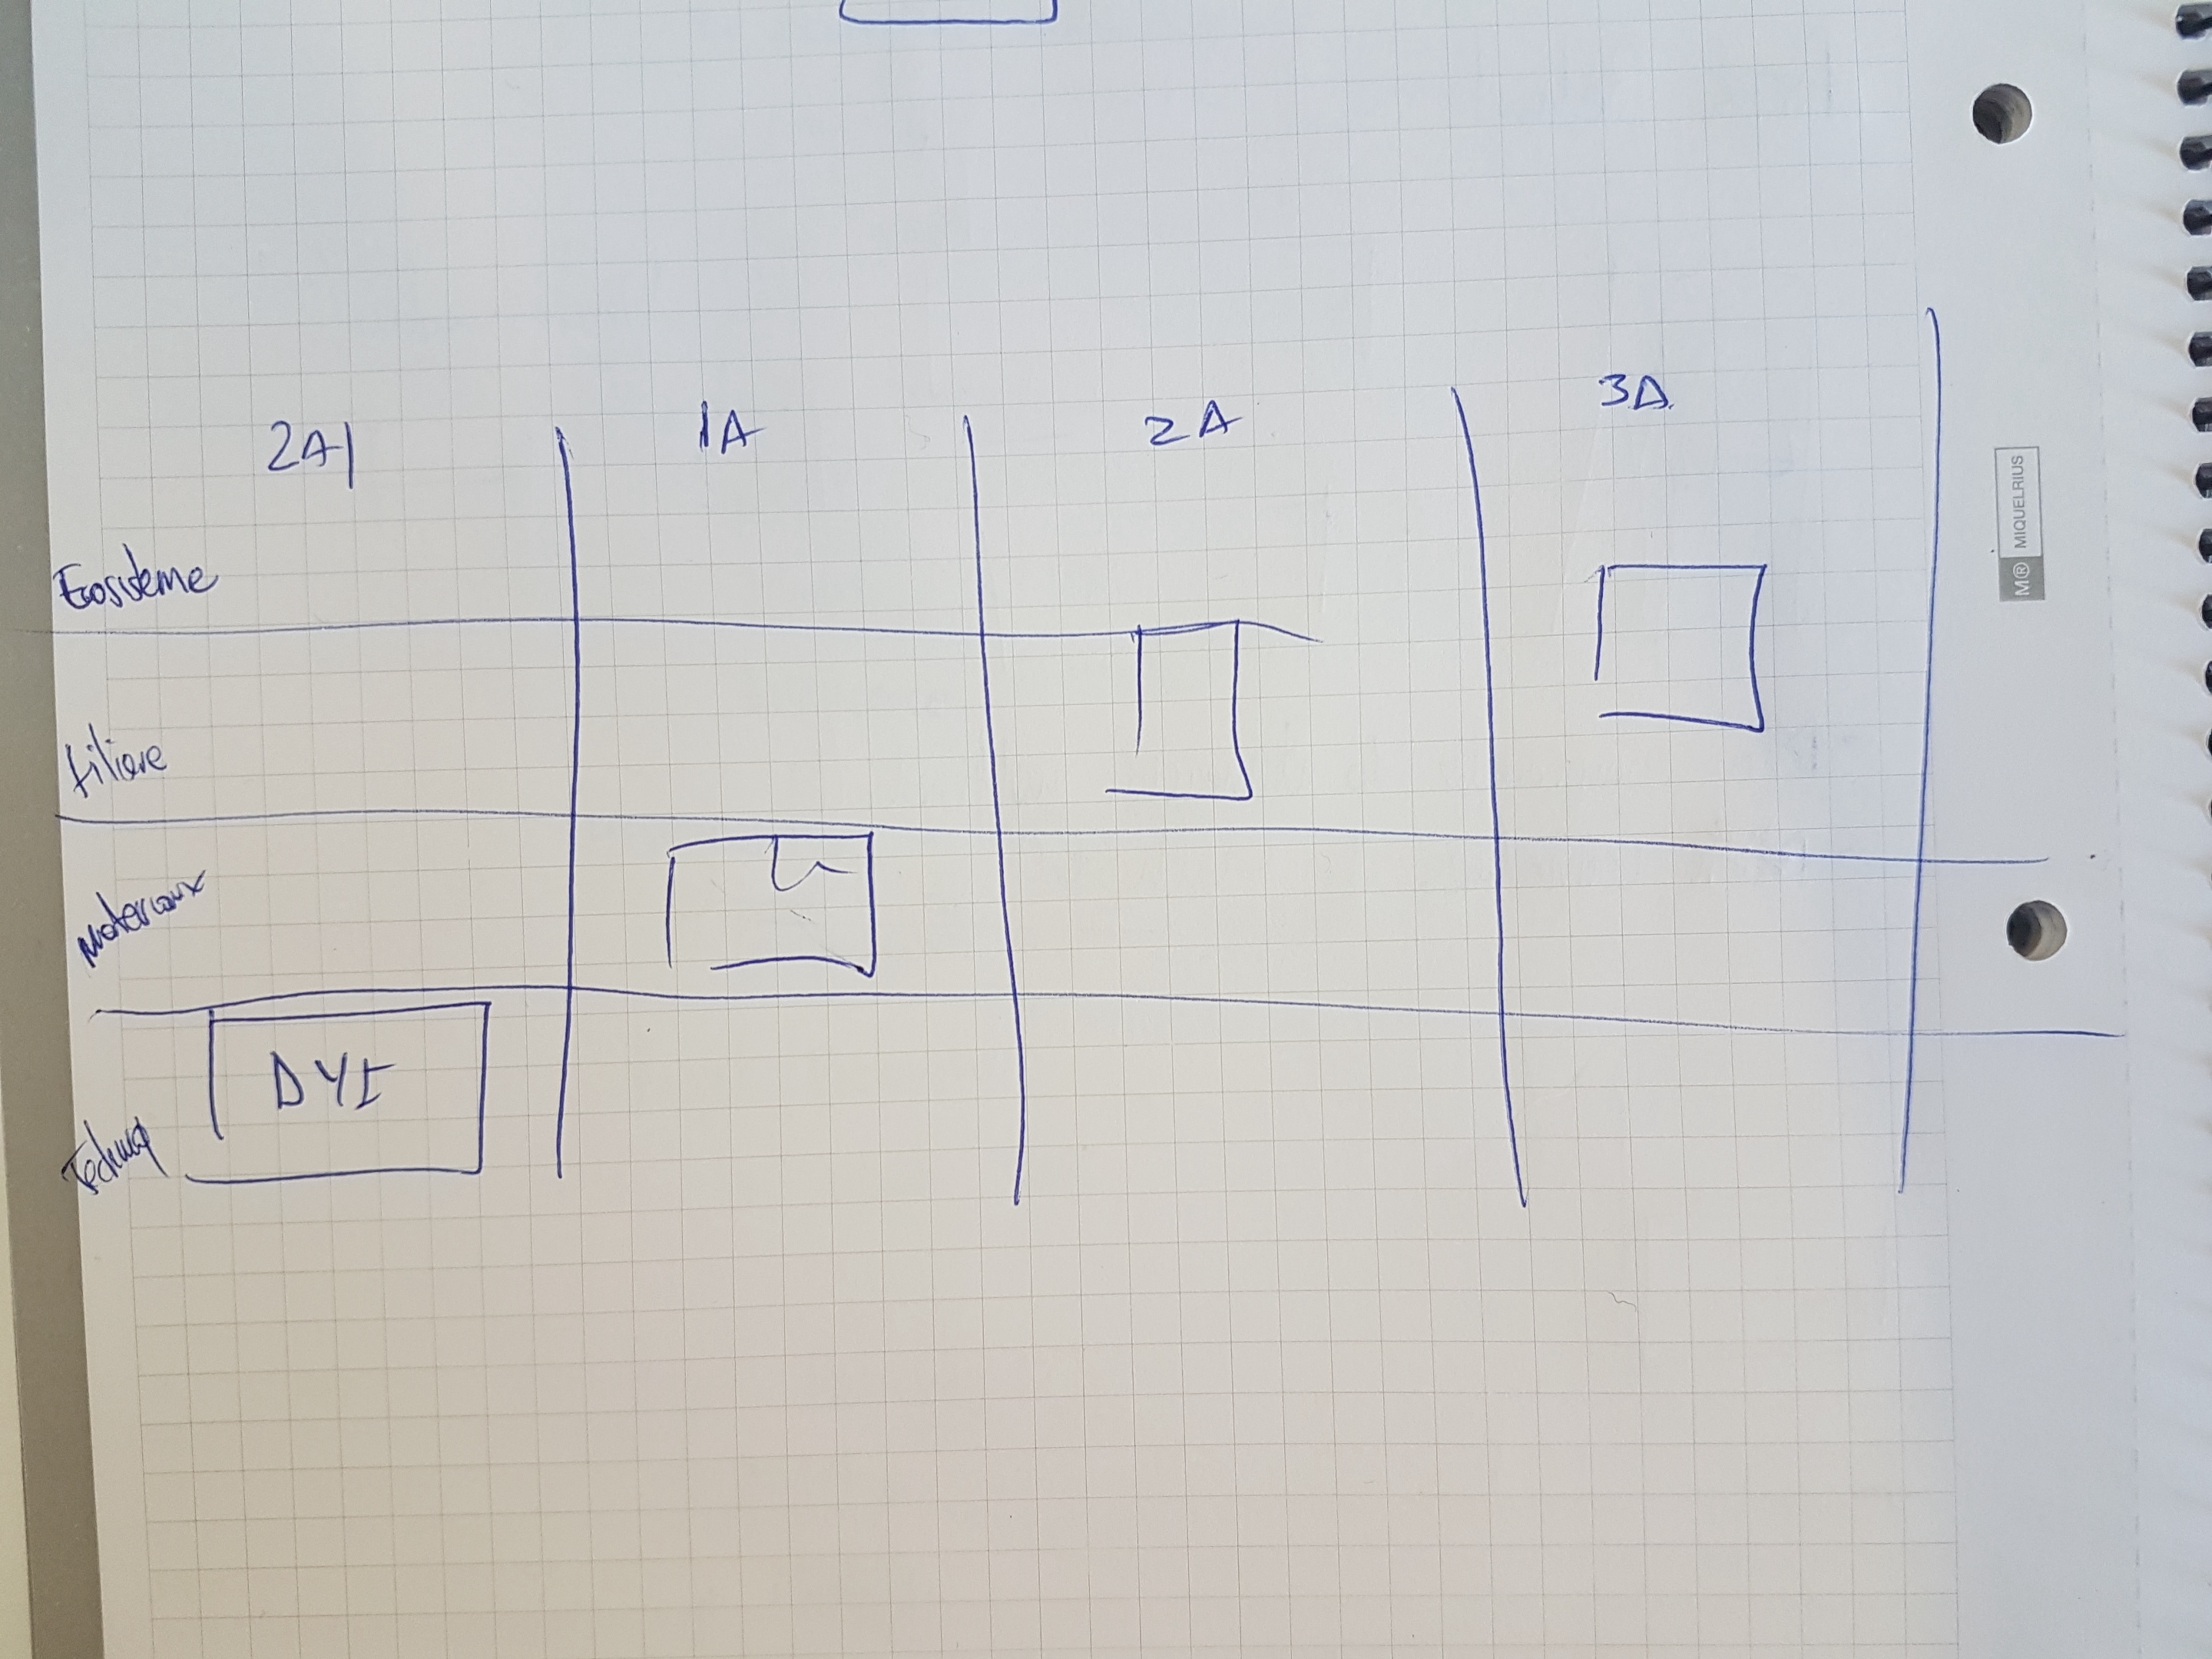 2A1 1A 2A 3A
Ecosisteme
filiere
Materiaux
DYI
Techniq
M® MIQUELRIUS